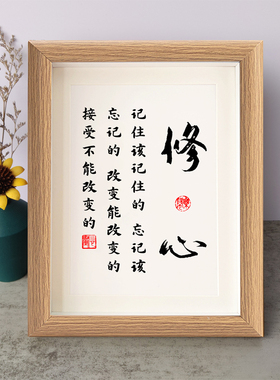 修心
记住该记住的 忘记该
忘记的 改变能改变的
接受不能改变的